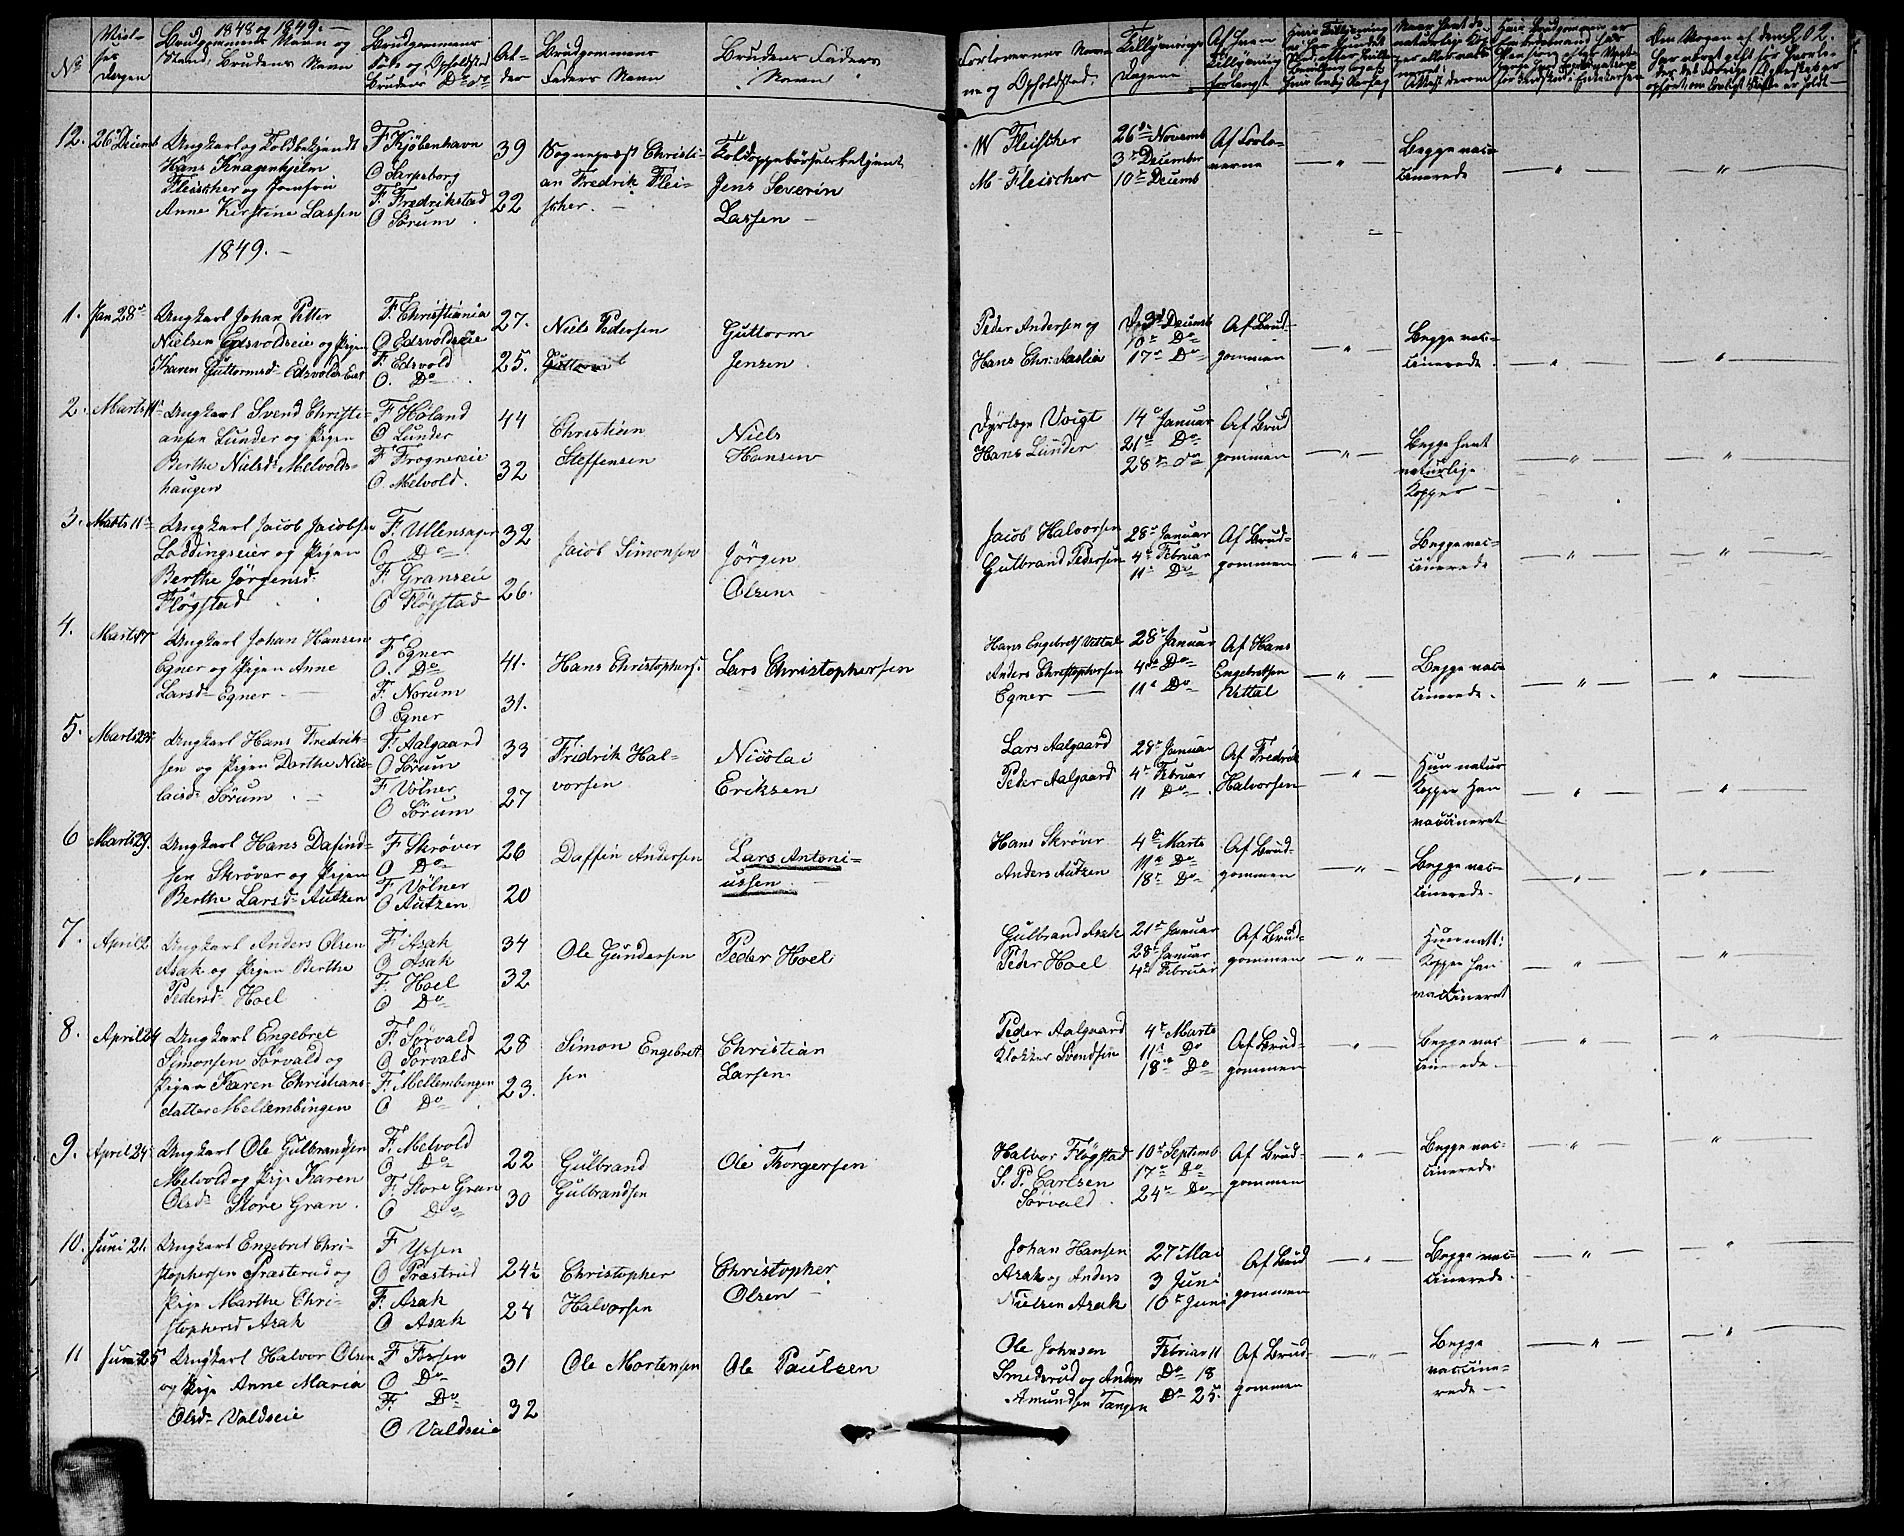 1848 og 1849.
202.
No
Viel-
ses
Dagen
Brudgommens Navn og
Stand, Brudens Navn
Brudgommens
Føde og Opholdsted
Brudens Do Do
Al-
der
Brudgommens
Faders Navn
Brudens Faders
Navn
Forlovernes Navne
og Opholdsted
Tillysnings
Dagene
Af hvem
Tillysning
forlangt
12. 26de Decemb
Ungkarl og Toldbetjendt
Hans Knagenhjelm
Fleischer og Jomfru
Anne Kirstine Lassen
F Kjøbenhavn
O Sarpsborg
F. Fredrikstad
O Sørum
39
22
Sognepræst Christi-
an Fredrik Flei-
scher.
Toldoppebørselsbetjent
Jens Severin
Lassen
W Fleischer
M. Fleischer
26de Novemb
3de December
10de Decemb
Af Forlo-
verne
Begge vac-
cinerede
1849.
1. Jan 28de
Ungkarl Johan Petter
Nielsen Edsvoldseie og Pigen
Karen Guttormsd.
F. Christiania
O Edsvoldseie
F. Edsvold
O. Do
27.
25.
Niels Pedersen
Guttorm
Jensen
Peder Andersen og
Hans Chr: Aaslia
3de Decemb
10de Do
17de Do
Af Brud-
gommen
Begge vac-
cinerede.
2. Marts 11
Ungkarl Svend Christi-
ansen Lunder og Pigen
Berthe Nielsd. Melvolds-
haugen
F Høland
O Lunder
F Frognereie
O Melvold.
44
32
Christian
Steffensen
Niels
Hansen
Dyrlæge Voigt
Hans Lunder
14 Januar
21de Do
28de Do
Af Brud
gommen
Begge havt
naturlige
Kopper
3. Marts 11
Ungkarl Jacob Jacobsen
Loddingseier og Pigen
Berthe Jørgensd.
Fløgstad
F. Ullensager
O Do
F. Granseie
O Fløgstad
32
26.
Jacob Simonsen
Jørgen
Olsen
Jacob Halvorsen
Gulbrand Pedersen
28de Januar
4de Februar
11 Do
Af Brud-
gommen
Begge vac-
cinerede
4. Marts
Ungkarl Johan Hansen
Egner og Pigen Anne
Larsd. Egner
F. Egner
O. Do
F. Norum
O Egner
41.
31.
Hans Christophers.
Lars Christophersen
Hans Engebretsen Vittal
Anders Christophersen
Egner
28de Januar
4de Do
11 Do
Af Hans
Engebretsen
Vittal
Begge vac-
cinerede.
5. Marts
Ungkarl Hans Fredrik-
sen og Pigen Dorthe Nico-
laisd. Sørum
F. Aalgaard
O Sørum
F Vølner
O Sørum
33
27
Fridrik Hal-
vorsen
Nicolai
Eriksen
Lars Aalgaard
Peder Aalgaard
28de Januar
4de Februar
11 Do
Af Fredrik
Halvorsen
Hun natur
Kopper Han
vaccineret
6 Marts 29.
Ungkarl Hans Dafind-
sen Skrøver og Pigen
Berthe Larsd. Autzen
F Skrøver
O Do
F. Vølner
O Autzen
26
20
Daffin Andersen
Lars Antoni-
ussen
Hans Skrøver
Anders Autzen
4de Marts
11de Do
18de Do
Af Brud-
gommen
Begge vac-
cinerede.
7. April 2
Ungkarl Anders Olsen
Asak og Pigen Berthe
Pedersd. Hoel
F. Asak
O Asak
F. Hoel
O Do
34
32
Ole Gundersen
Peder Hoel
Gulbrand Asak
Peder Hoel
21de Januar
28de Januar
4de Februar
Af Brud-
gommen
Hun natt:
Kopper Han
vaccineret
8. April 24
Ungkarl Engebret
Simonsen Sørvald og
Pigen Karen Christians-
datter Mellembingen
F. Sørvald
O Sørvald
F. Mellembingen
O Do
28
23.
Simon Engebret-
sen
Christian
Larsen
Peder Aalgaard
Klokker Svendsen
4de Marts
11de Do
18de Do
Af Brud-
gommen
Begge vac
cinerede.
9. April 24
Ungkarl Ole Gulbrandsen
Melvold og Pige Karen
Olsd. Store Gran.
F. Melvold
O Do
F. Store Gran
O Do
22
30
Gulbrand
Gulbrandsen
Ole Thorgersen
Halvor Fløgstad
S. P. Carlsen
Sørvald
10de Septemb
17de Do
24de Do
Af Brud-
gommen
Begge vac-
cinerede
10. Juni 21.
Ungkarl Engebret Chri-
stophersen Præsterud og
Pige Marthe Chri-
stophersd. Asak
F Yssen
O Præsterud
F. Asak
O Asak
24½
24
Christopher
Halvorsen
Christopher
Olsen
Johan Hansen
Asak og Anders
Nielsen Asak
27de Mai
3 Juni
10de Juni
Af Brud
gommen
Begge vac-
cinerede.
11 Juni 25
Ungkarl Halvor Olsen
og Pige Anne Maria
Olsd. Valdseie
F Fossen
O Do
F. Do
O Valdseie
31
32
Ole Mortensen
Ole Paulsen
Ole Johnsen
Smedsrud og Anders
Amundsen Tangen
Februar 11
Do 18
Do 25.
Af Brud-
gommen
Begge
vaccine-
rede